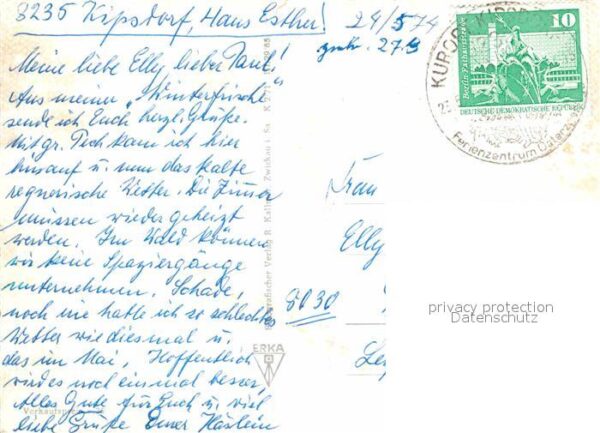 8235 Kipsdorf, Haus Esther!
Meine liebe Elly, lieber Paul!
Aus meiner „Winterfrische"
sende ich Euch herzl. Grüße.
Mit gr. Pech kam ich hier
herauf u. nun das kalte
regnerische Wetter. Die Zimmer
müssen wieder geheizt
werden. Im Wald können
wir keine Spaziergänge
unternehmen. Schade,
noch nie hatte ich so schlechtes
Wetter wie diesmal u.
das im Mai. Hoffentlich
wird es noch einmal besser.
Alles Gute für Euch u. viel
liebe Grüße Euer Häslein
24/5 74
27.5
KURORT KIPSDORF
Ferienzentrum Osterz
10
Berlin, Fischerinsel
DEUTSCHE DEMOKRATISCHE REPUBLIK
Frau
Elly
8030
privacy protection
Datenschutz
ERKA
Verlag R
Zwickau i. Sa.
Verkaufspreis